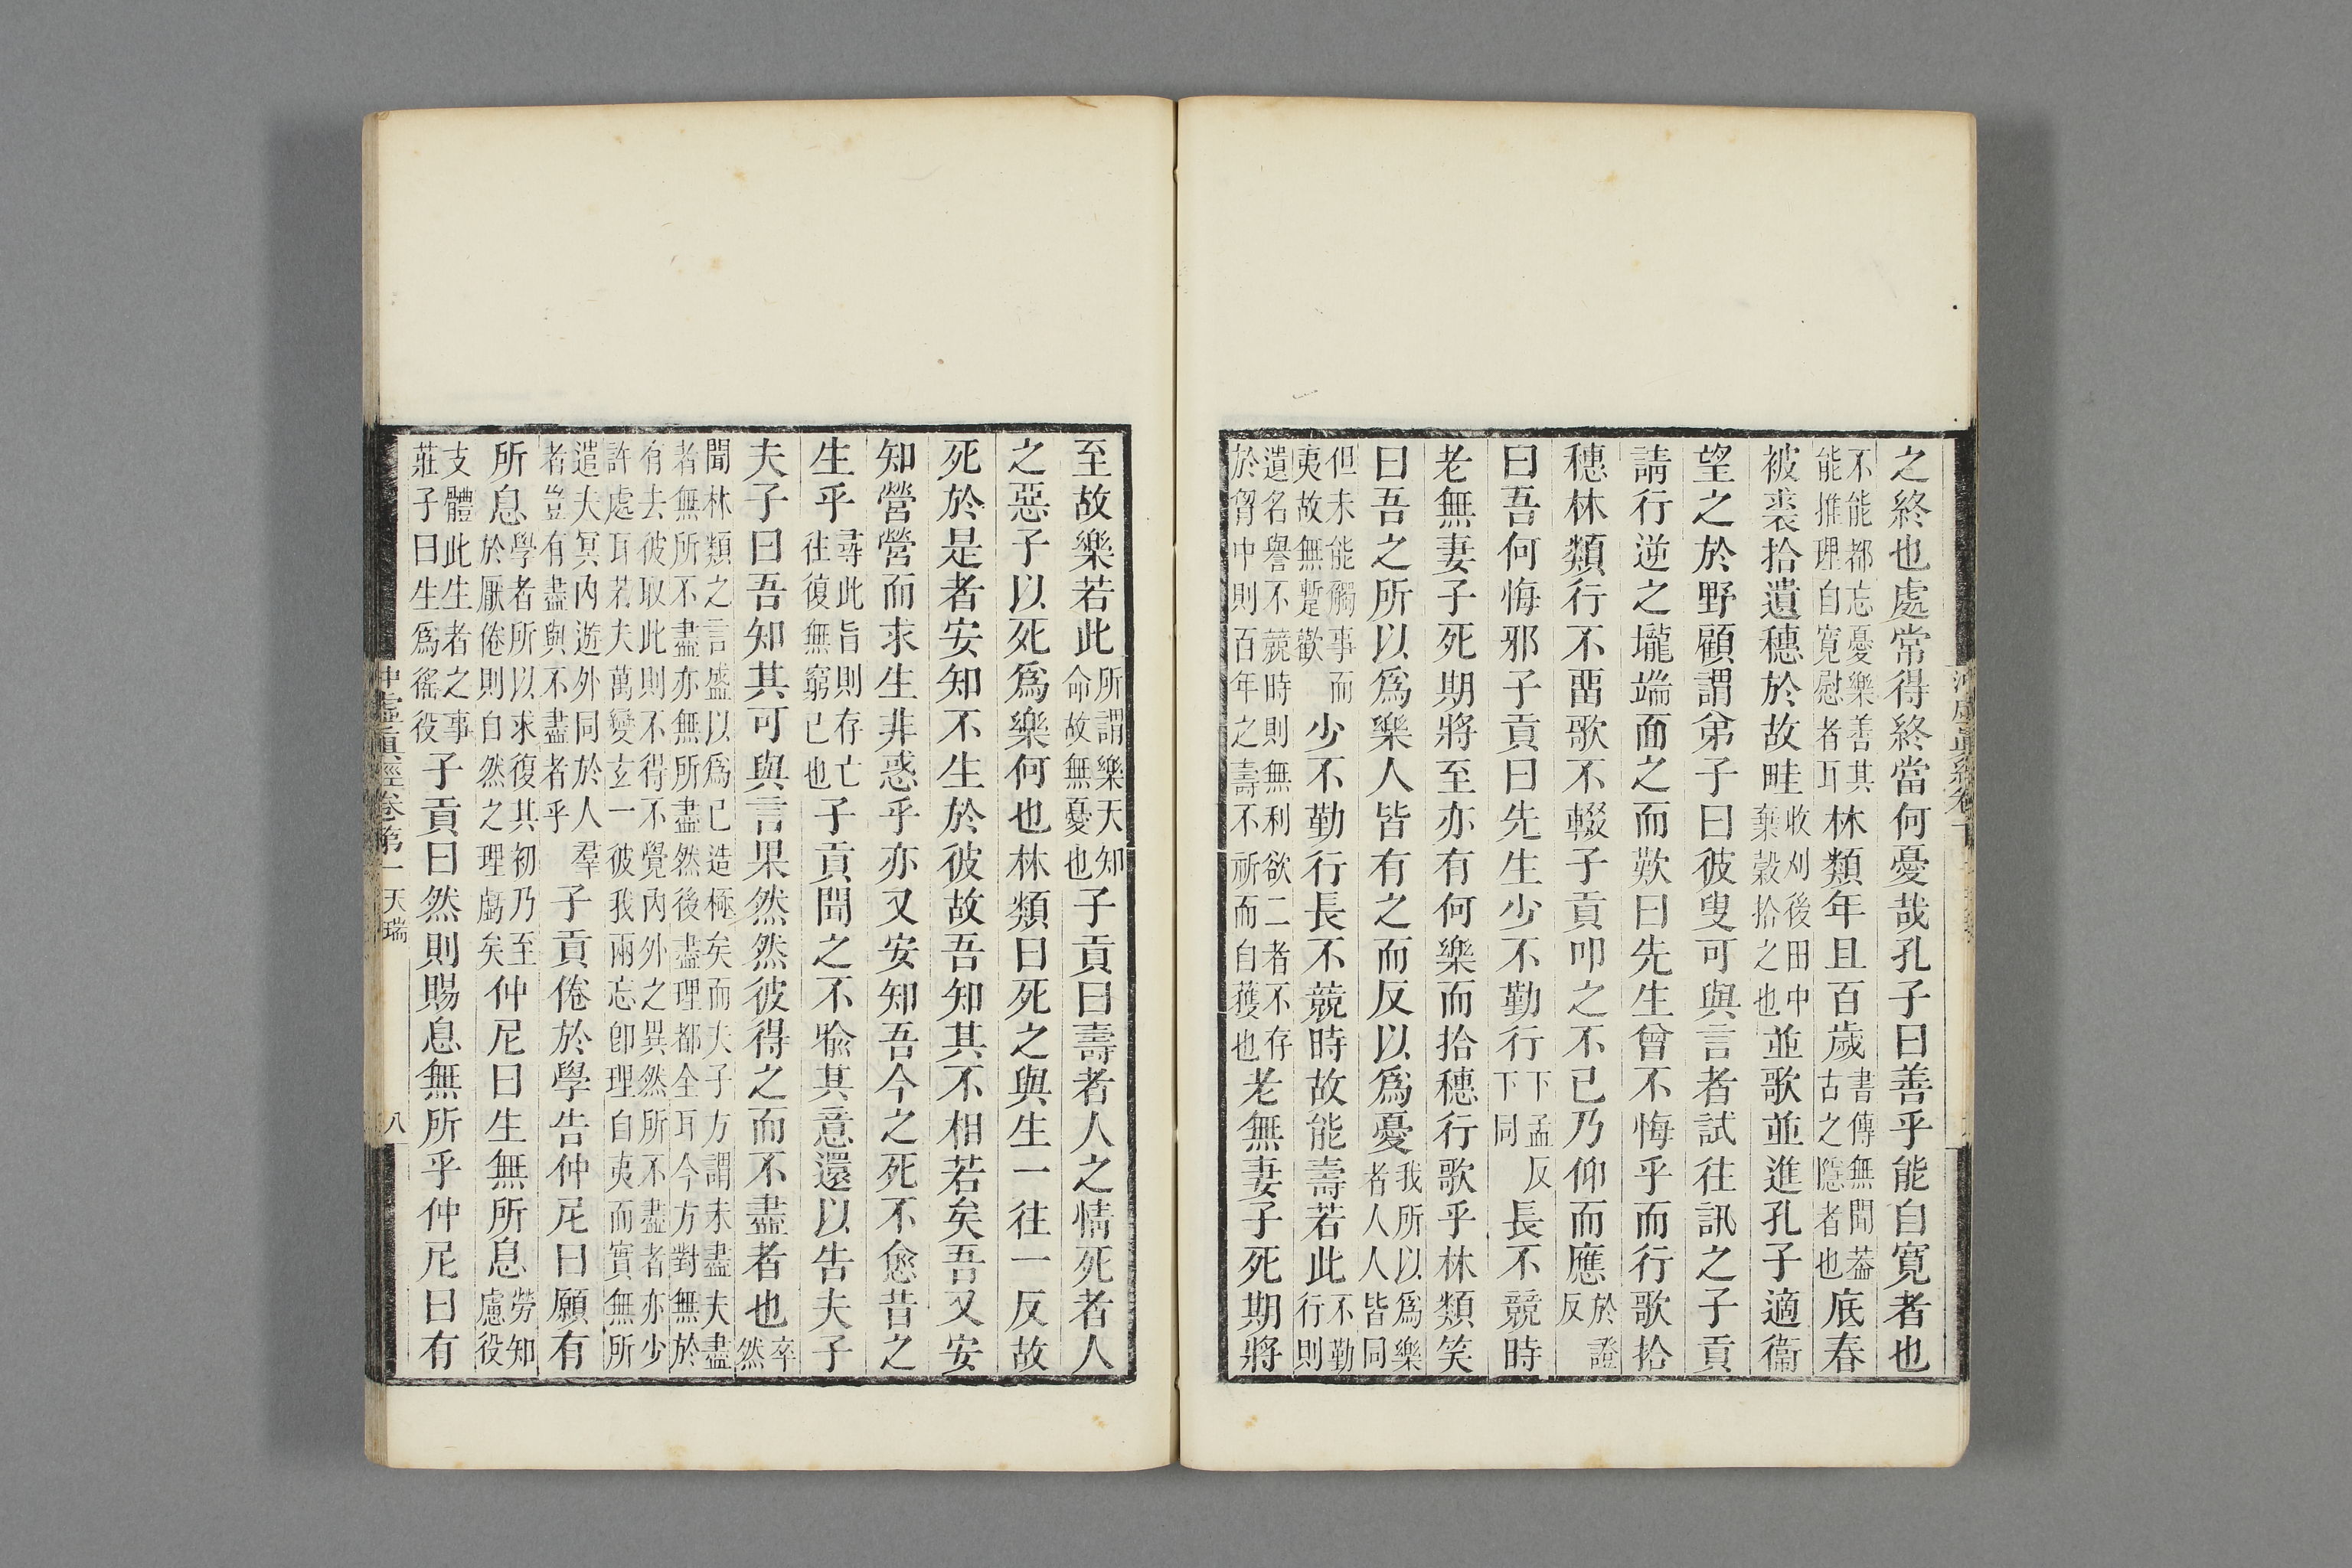 之終也處常得終當何憂哉孔子曰善乎能自寬者也
不能都忘憂樂善其能推理自寬慰者耳林類年且百歲書傳無聞葢古之隱者也底春
被裘拾遺穗於故畦收刈後田中棄穀拾之也並歌並進孔子適衞
望之於野顧謂弟子曰彼叟可與言者試往訊之子貢
請行逆之壠端面之而歎曰先生曾不悔乎而行歌拾
穗林類行不畱歌不輟子貢叩之不已乃仰而應於證反
曰吾何悔邪子貢曰先生少不勤行下孟反下同長不競時
老無妻子死期將至亦有何樂而拾穗行歌乎林類笑
曰吾之所以爲樂人皆有之而反以爲憂我所以爲樂者人人皆同
但未能觸事而夷故無蹔歡少不勤行長不競時故能壽若此不勤行則
遺名譽不競時則無利欲二者不存於胷中則百年之壽不祈而自獲也老無妻子死期將
至故樂若此所謂樂天知命故無憂也子貢曰壽者人之情死者人
之惡子以死爲樂何也林類曰死之與生一往一反故
死於是者安知不生於彼故吾知其不相若矣吾又安
知營營而求生非惑乎亦又安知吾今之死不愈昔之
生乎尋此旨則存亡往復無窮已也子貢聞之不喻其意還以告夫子
夫子曰吾知其可與言果然然彼得之而不盡者也卒然
聞林類之言盛以爲已造極矣而夫子方謂未盡夫盡者無所不盡亦無所盡然後盡理都全耳今方對無於
有去彼取此則不得不覺內外之異然所不盡者亦少許處耳若夫萬變玄一彼我兩忘卽理自夷而實無所
遣夫冥內遊外同於人羣者豈有盡與不盡者乎子貢倦於學告仲尼曰願有
所息學者所以求復其初乃至於厭倦則自然之理虧矣仲尼曰生無所息勞知慮役
支體此生者之事莊子曰生爲徭役子貢曰然則賜息無所乎仲尼曰有
沖虛眞經卷第一 天瑞 八